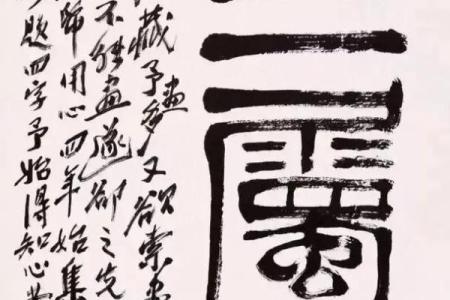 三
藏予畫多又欲索
不能畫遂卻之先
師用心四年始集
題四字予始得知心